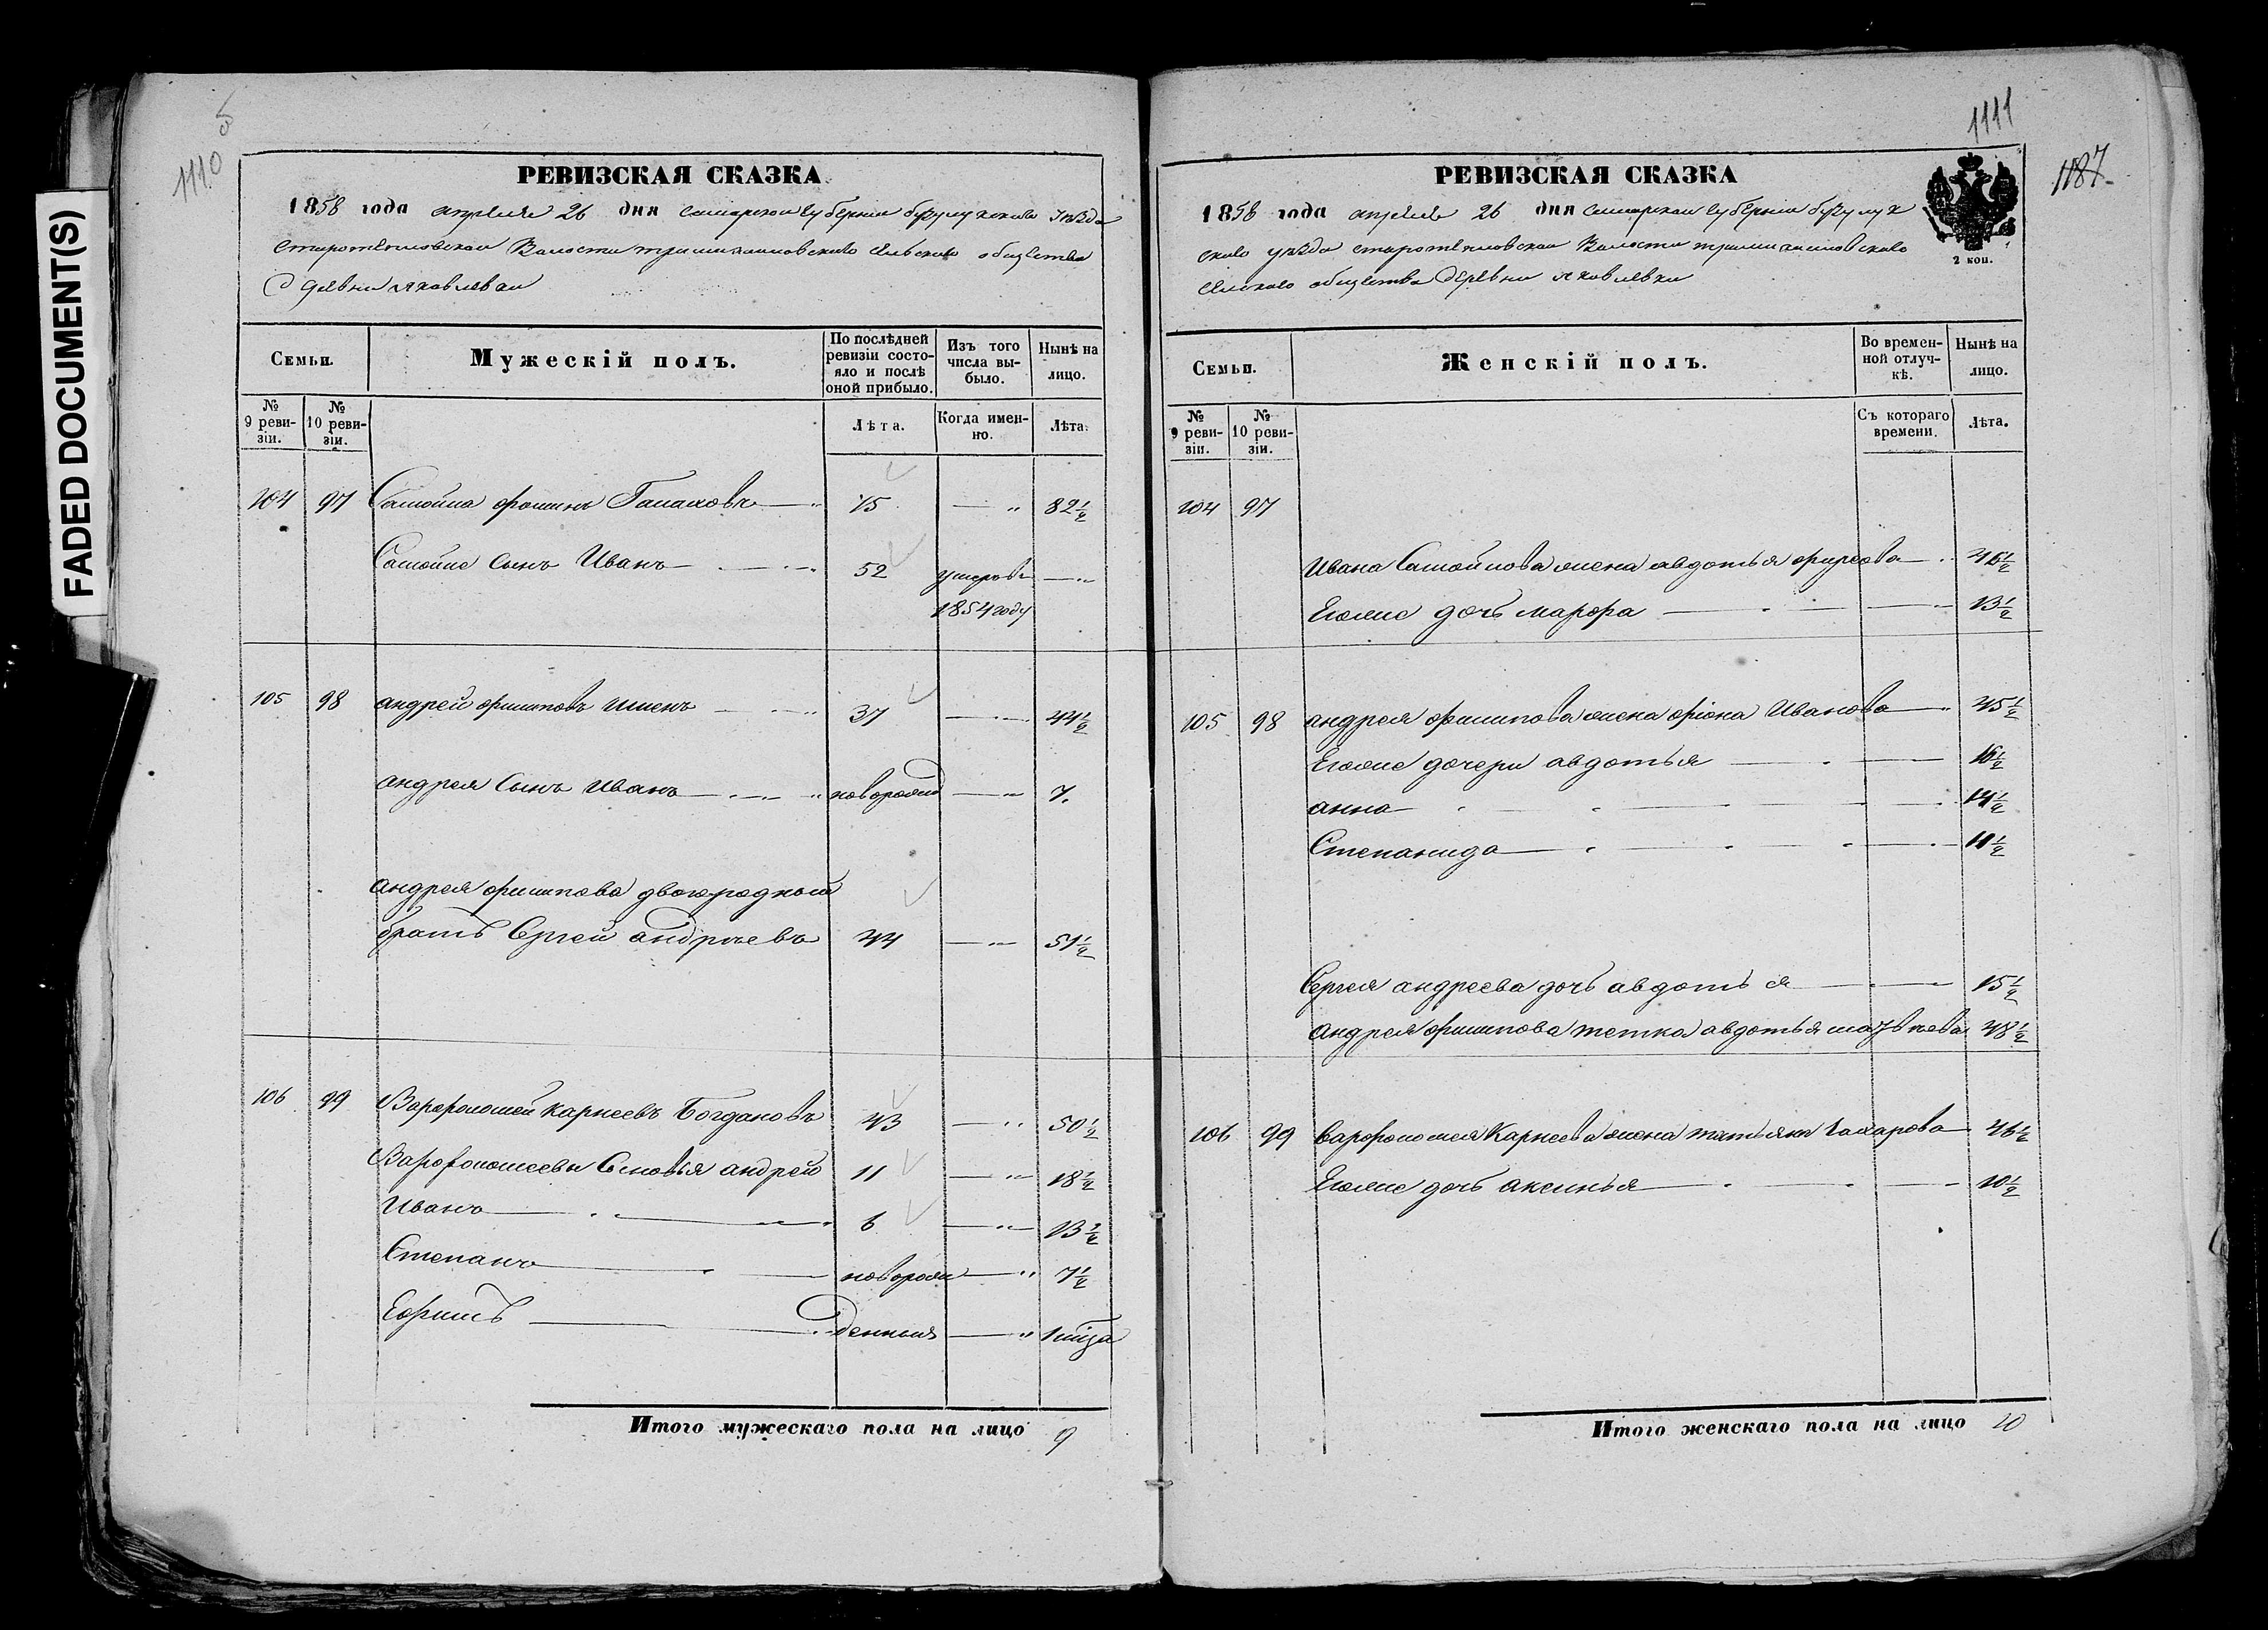 FADED DOCUMENT(S)
5
1110
РЕВИЗСКАЯ СКАЗКА
1858 года апреля 26 дня самарской губерніи бузулукскаго уѣзда
Валости сельскаго общества
1111
1187
РЕВИЗСКАЯ СКАЗКА
2 коп.
1858 года апреля 26 дня самарской губерніи бузулук
скаго уѣзда Валости
селскаго общества деревни яковлевки
Семьи.
Мужескій полъ.
По послѣдней ревизіи состояло и послѣ оной прибыло.
Изъ того числа выбыло.
Нынѣ на лицо.
№ 9 ревизіи.
№ 10 ревизіи.
Лѣта.
Когда именно.
Лѣта.
104 97 Самойла фоминъ 75 — " 82½
Самойла сынъ Иванъ 52 умеръ —"
1854 году
105 98 андрей филиповъ 37 — 44½
андрея сынъ Иванъ новорожд — " 7.
андрея филипова двоюродный
братъ Сергей андреевъ 44 — " 51½
106 99 Варфоломей карнеевъ Богдановъ 43 — " 50½
Варфоломеевы Сыновья андрей 11 — " 18½
Иванъ 6 — " 13½
Степанъ новорож — " 7½
Ефимъ денныя — "
Итого мужескаго пола на лицо 9
Семьи.
Женскій полъ.
Во временной отлучкѣ.
Нынѣ на лицо.
№ 9 ревизіи.
№ 10 ревизіи.
Съ котораго времени.
Лѣта.
104 97
Ивана Самойлова жена авдотья 46½
Егоже дочь марфа 13½
105 98 андрея филипова жена Иванова 45½
Егоже дочери авдотья 16½
анна 14½
Степанида 11½
Сергея андреева дочь авдотья 15½
андрея филипова тетка авдотья 48½
106 99 варфоломея Карнеева жена татьяна захарова 46½
Егоже дочь аксинья 10½
Итого женскаго пола на лицо 10